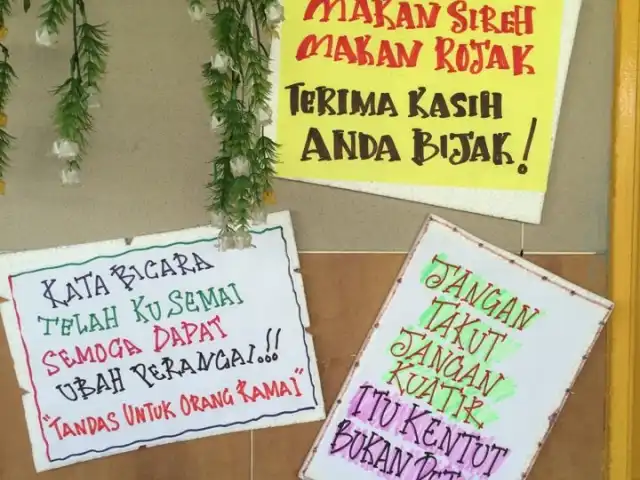 MAKAN SIREH
MAKAN ROJAK
TERIMA KASIH
ANDA BIJAK!
KATA BICARA
TELAH KU SEMAI
SEMOGA DAPAT
UBAH PERANGAI..!!
"TANDAS UNTUK ORANG RAMAI"
JANGAN
TAKUT
JANGAN
KUATIR
ITU KENTUT
BUKAN